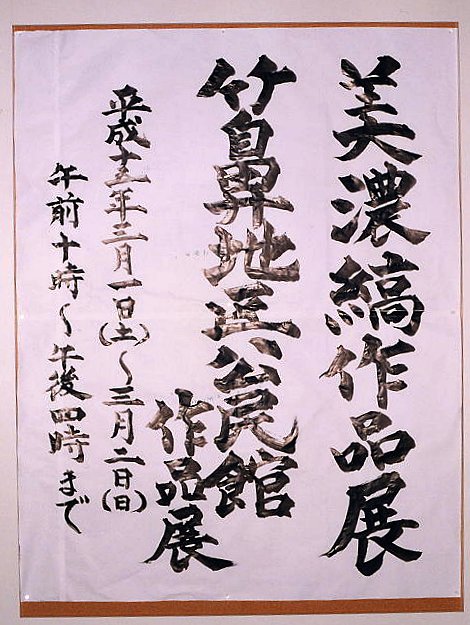 美濃縞作品展
竹鼻地区公民館
作品展
平成十五年三月一日(土)〜三月二日(日)
午前十時〜午後四時まで